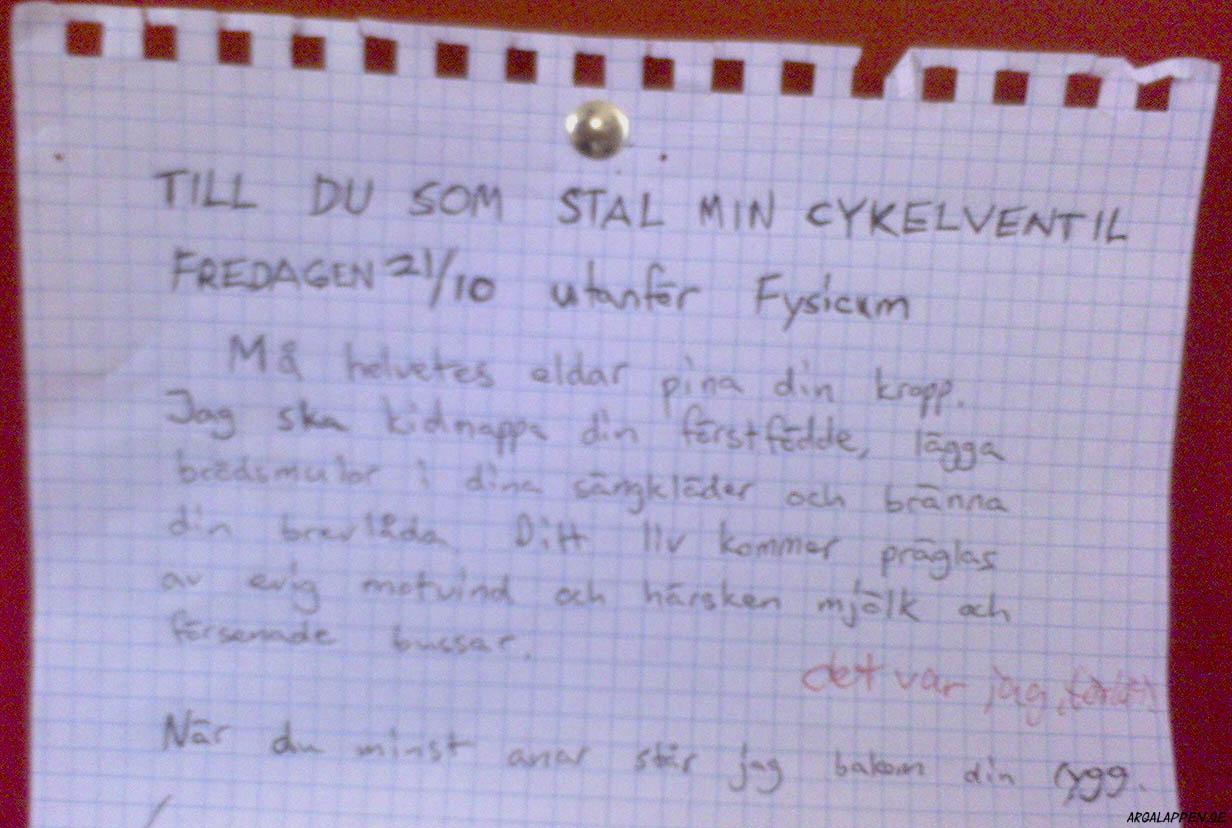 TILL DU SOM STAL MIN CYKELVENTIL
FREDAGEN 21/10 utanför Fysicum
Må helvetes eldar pina din kropp.
Jag ska kidnappa din förstfödde, lägga
brödsmulor i dina sängkläder och bränna
din brevlåda. Ditt liv kommer präglas
av evig motvind och härsken mjölk och
försenade bussar.
det var jag, förlåt!
När du minst anar står jag bakom din rygg.
ARGALAPPEN.SE